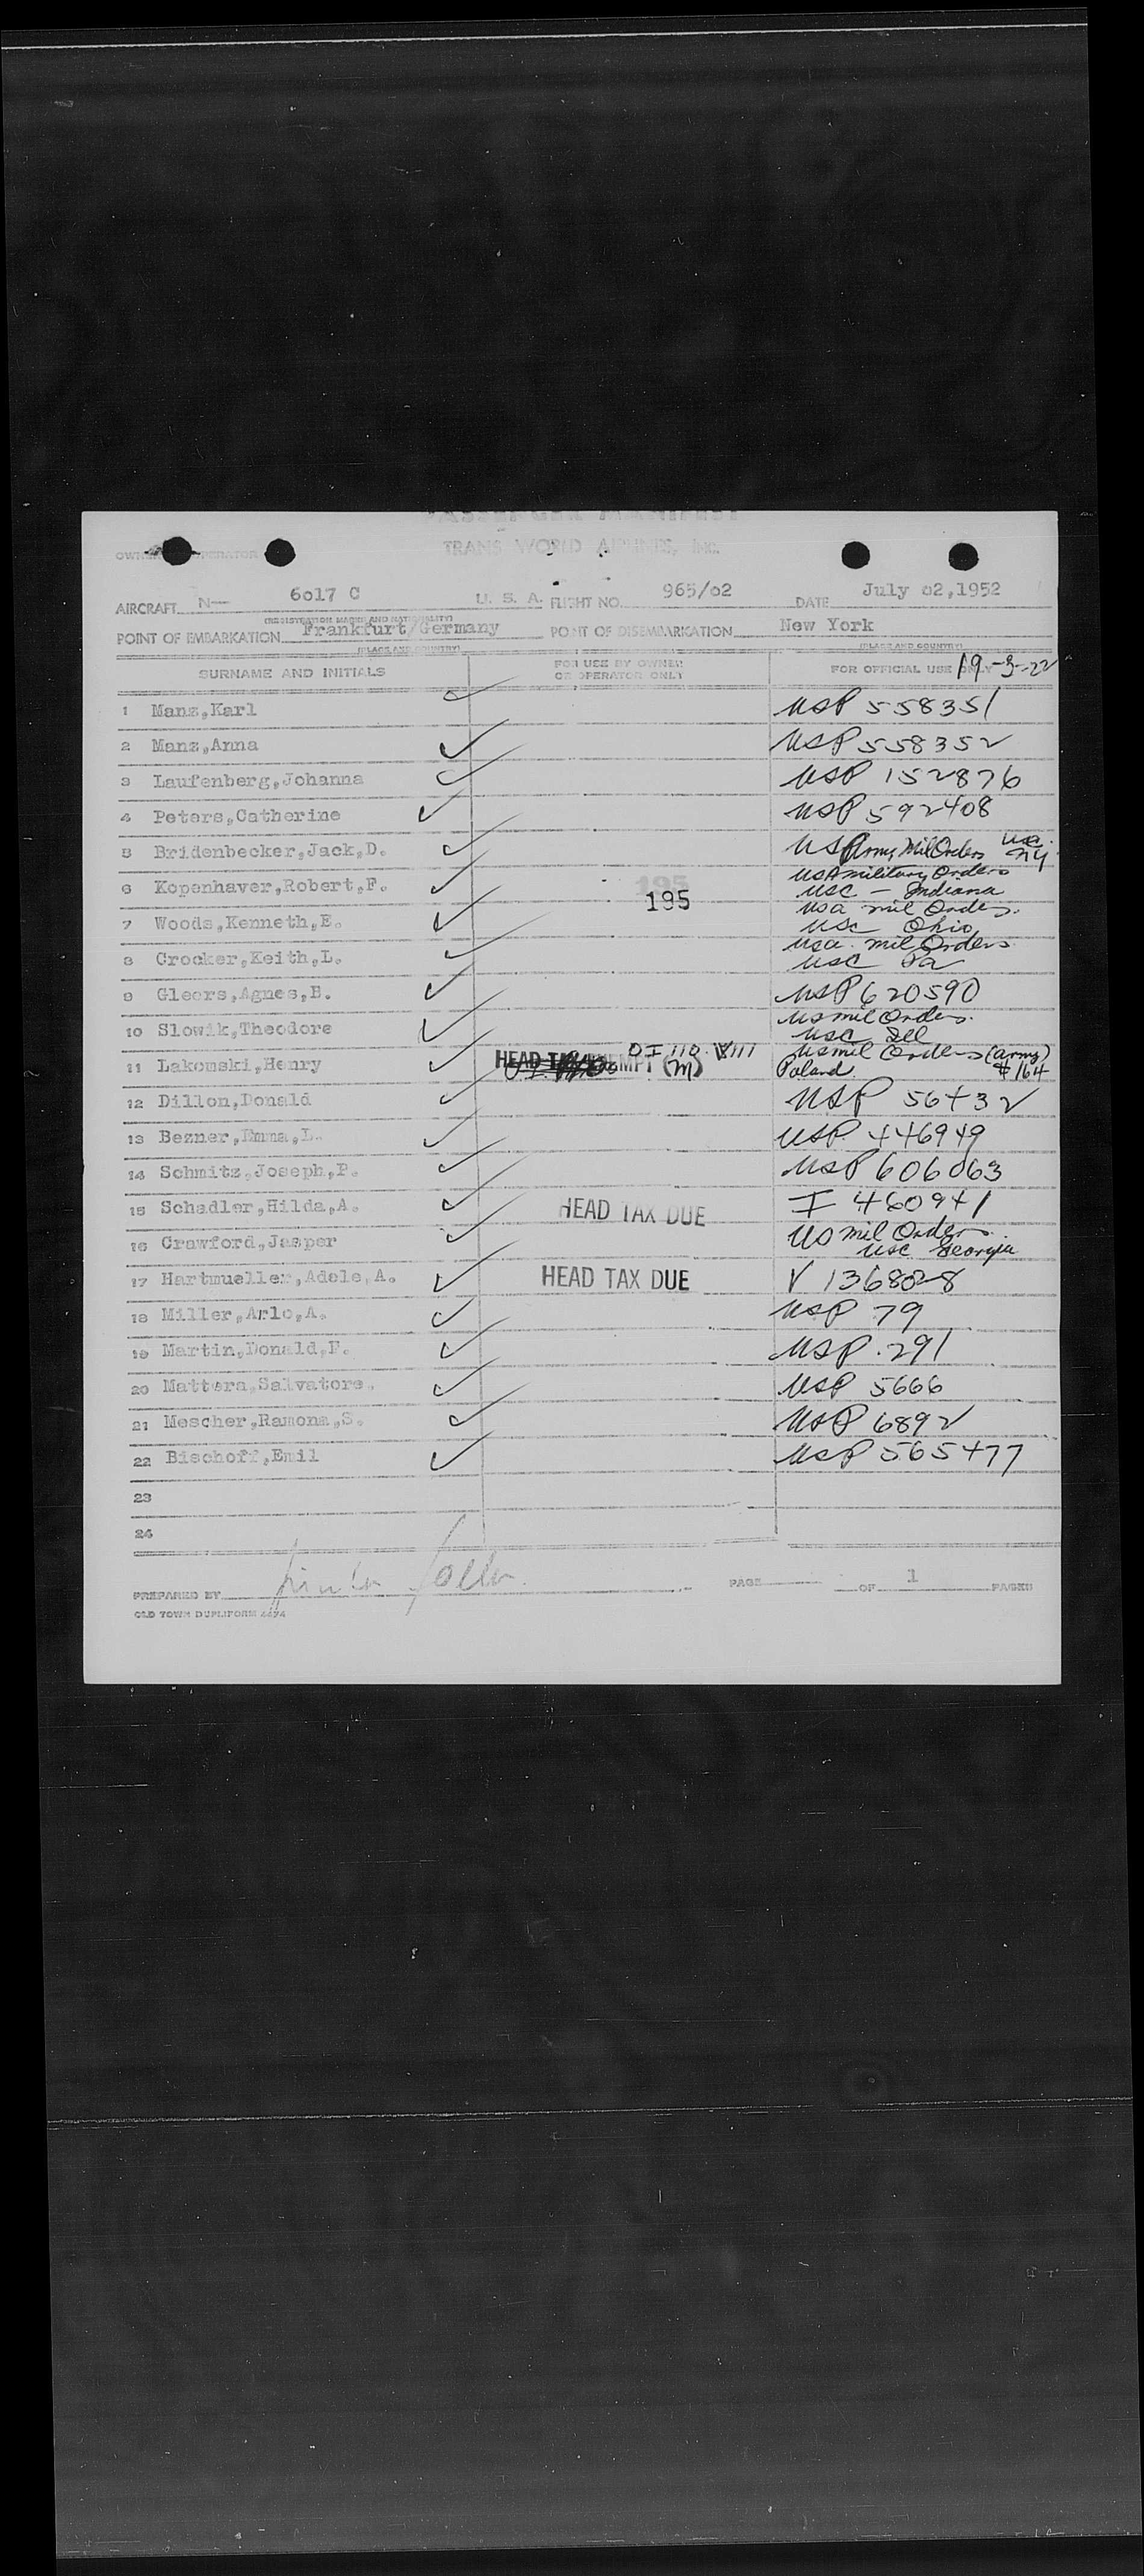 PASSENGER MANIFEST
OWNER OPERATOR TRANS WORLD AIRLINES, Inc.
AIRCRAFT N— 6o17 C U. S. A. FLIGHT NO. 965/o2 DATE July o2,1952
(REGISTRATION MARKS AND NATIONALITY)
POINT OF EMBARKATION Frankfurt/Germany POINT OF DISEMBARKATION New York
(PLACE AND COUNTRY) (PLACE AND COUNTRY)
SURNAME AND INITIALS FOR USE BY OWNER OR OPERATOR ONLY FOR OFFICIAL USE ONLY 19-3-22
1 Manz,Karl USP 558351
2 Manz,Anna USP 558352
3 Laufenberg,Johanna USP 152876
4 Peters,Catherine USP 592408
5 Bridenbecker,Jack,D. US Army Mil Orders usc. NY
6 Kopenhaver,Robert,F. 195 USA military Orders
usc — Indiana
195
7 Woods,Kenneth,E. usa mil Orders.
usc Ohio
8 Crocker,Keith,L. usa. mil Orders
usc Pa
9 Gleors,Agnes,B. USP 620590
10 Slowik,Theodore us mil Orders.
usc Ill
11 Lakomski,Henry HEAD TAX EXEMPT (M) OI 110. VIII us mil Orders (army)
Poland. #164
12 Dillon,Donald USP 56432
13 Bezner,Emma,L. USP. 446949
14 Schmitz,Joseph,P. USP 606063
15 Schadler,Hilda,A. HEAD TAX DUE I 460941
16 Crawford,Jasper US mil Orders
usc Georgia
17 Hartmueller,Adele,A. HEAD TAX DUE V 1368028
18 Miller,Arlo,A. USP 79
19 Martin,Donald,F. USP. 291
20 Mattera,Salvatore. USP 5666
21 Mescher,Ramona,S. USP 6892
22 Bischoff,Emil USP 565477
23
24
PREPARED BY PAGE OF 1 PAGES
OLD TOWN DUPLIFORM 4694